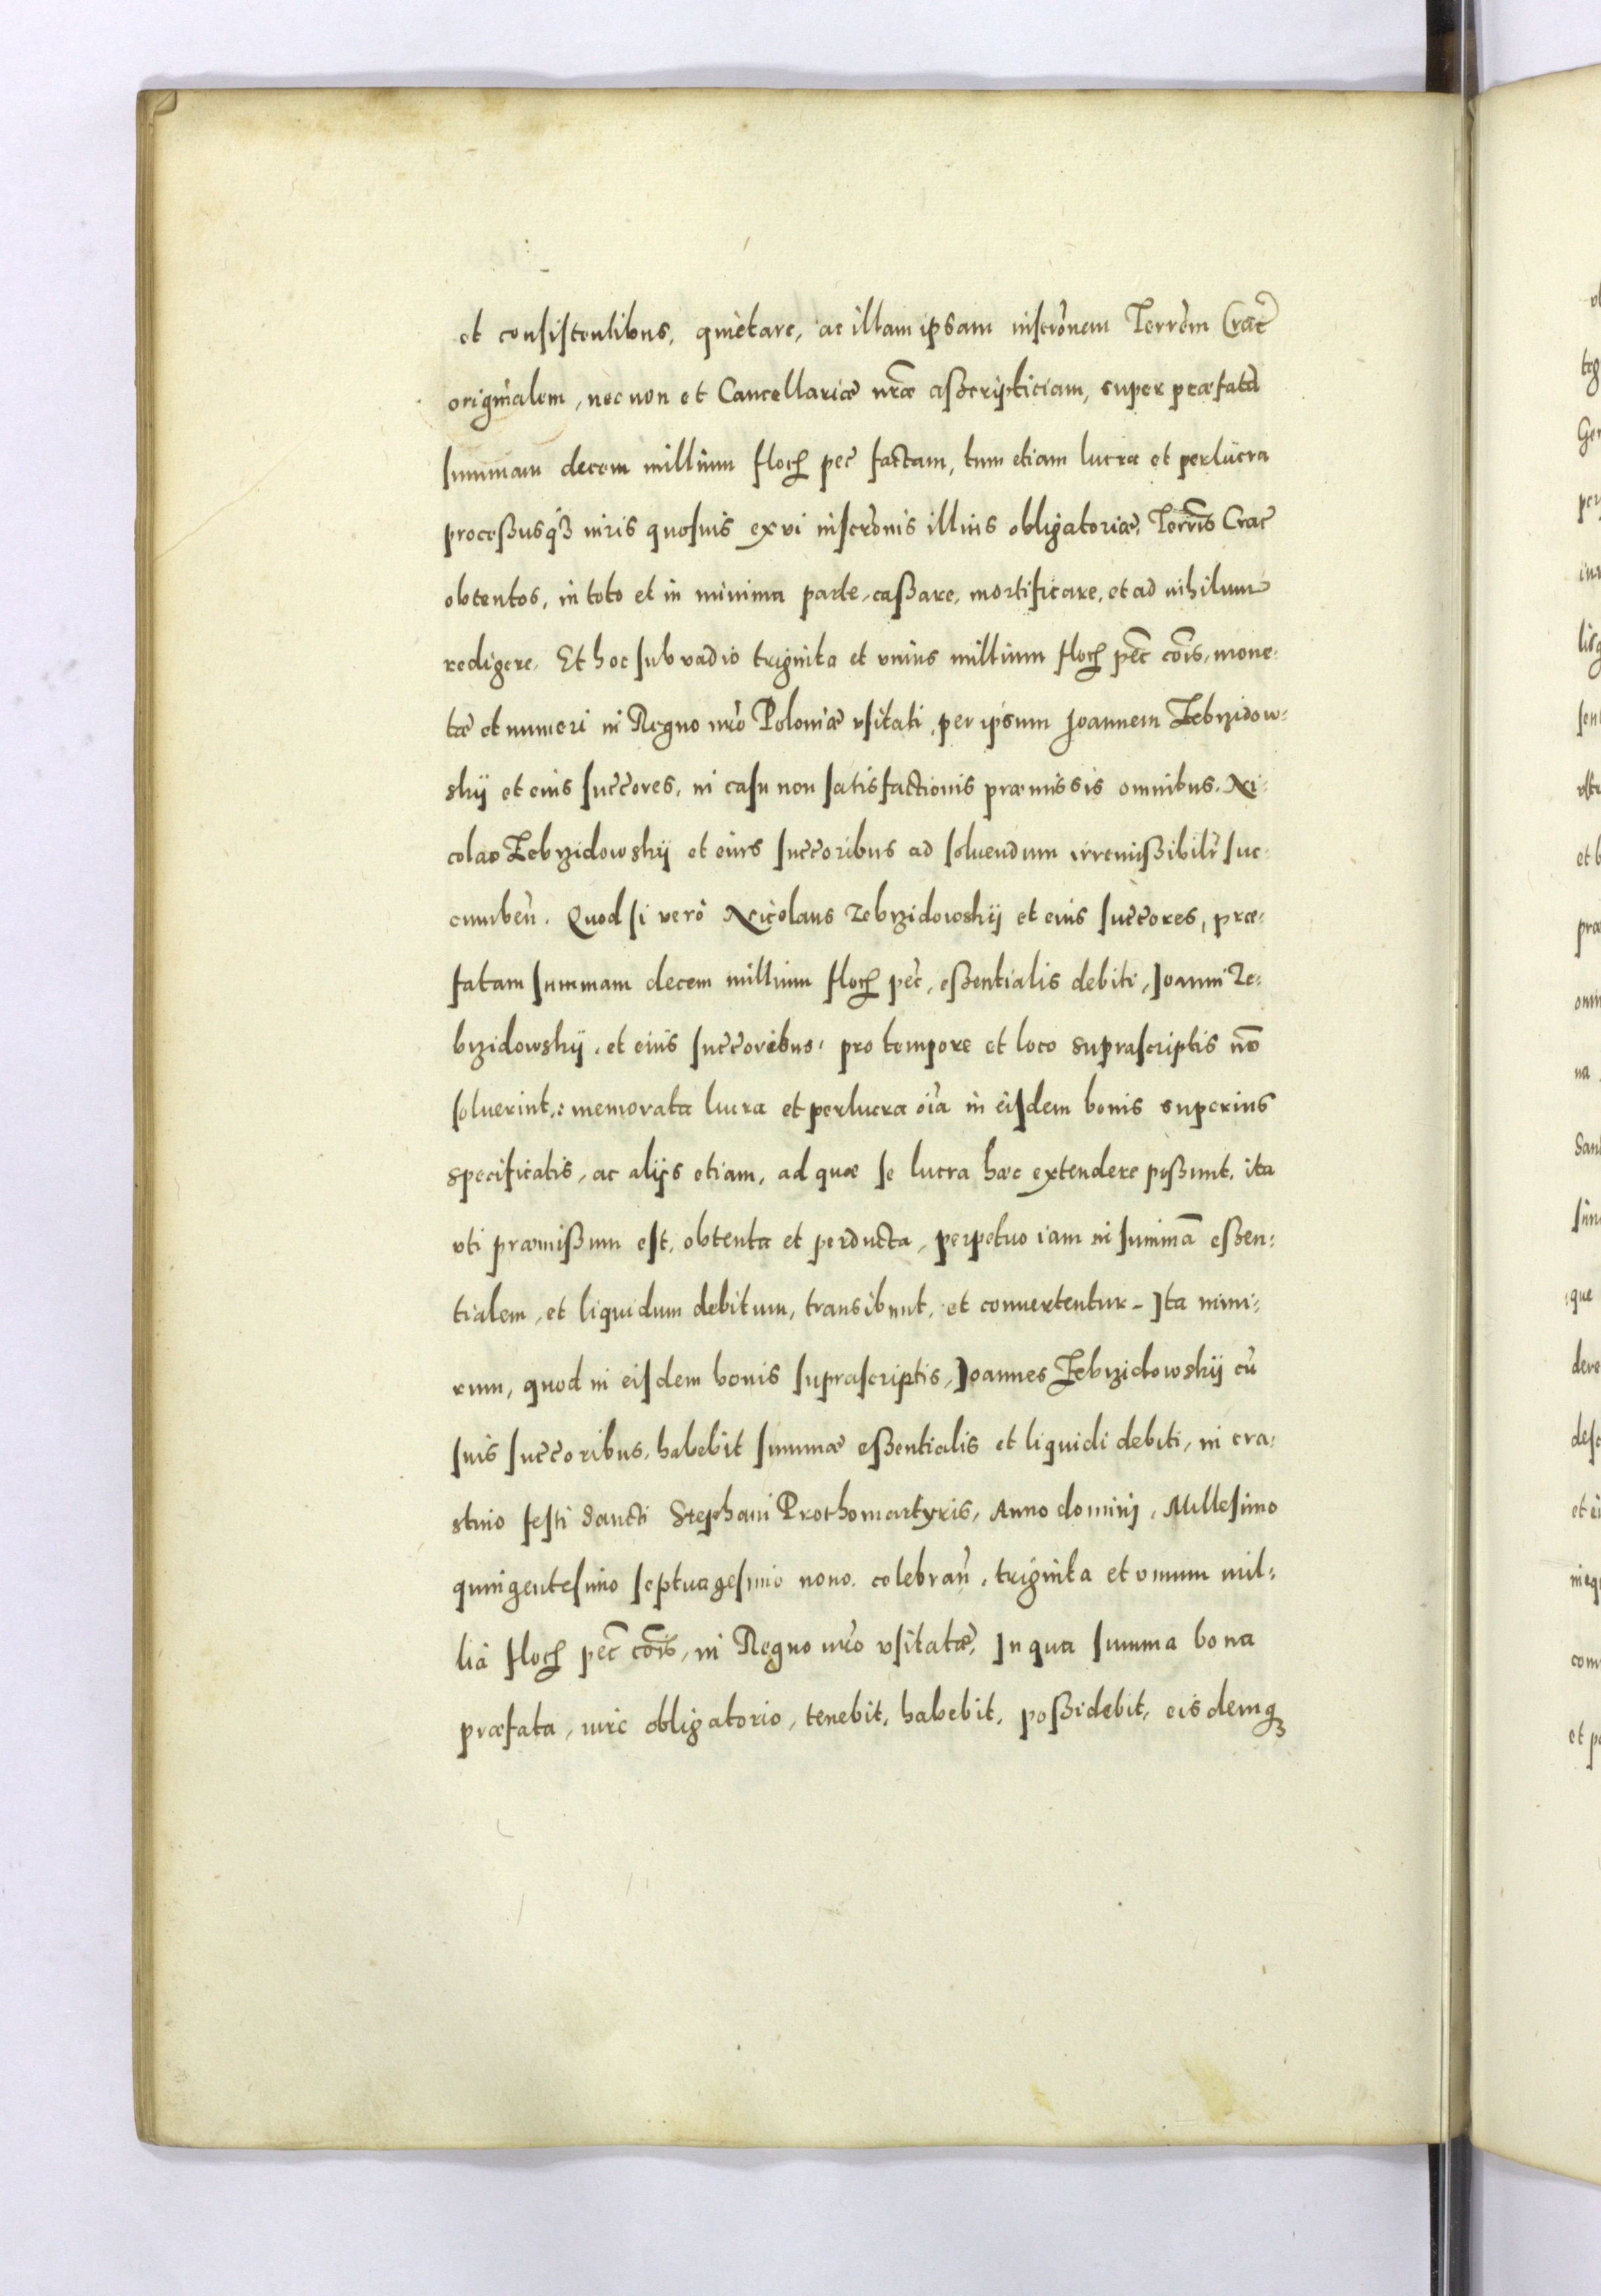 et consistentibus, quietare, ac illam ipsam inscr̃onem Terrẽm Crac̃
originalem, nec non et Cancellariæ nr̃æ asscripticiam, super præfatã
summam decem millium flor̃ pec̃ factam, tum etiam lucra et perlucra
processusq̃ȝ iuris quosuis ex vi inscr̃onis illius obligatoriæ, Terrĩs Crac̃
obtentos, in toto et in minima parte, cassare, mortificare, et ad nihilum
redigere. Et hoc sub vadio triginta et vnius millium flor̃ pec̃ cõis, mone:
tæ et numeri in Regno nrõ Poloniæ vsitati, per ipsum Joannem Zebrzidow:
skij et eius succ̃ores, in casu non satisfactionis præmissis omnibus. Ni:
colao Zebrzidowskij et eius succ̃oribus ad soluendum irremissibilr̃ suc:
cumbeñ. Quod si verò Nicolaus Zebrzidowskij et eius succ̃ores, præ:
fatam summam decem millium flor̃ pec̃, essentialis debiti, Joanni Ze:
brzidowskij, et eius succ̃oribus, pro tempore et loco suprascriptis nõ
soluerint,: memorata lucra et perlucra oĩa in eisdem bonis superius
specificatis, ac alijs etiam, ad quæ se lucra hæc extendere possunt, ita
vti præmissum est, obtenta et perducta, perpetuo iam in summã essen:
tialem, et liquidum debitum, transibunt, et conuertentur - Ita nimi:
rum, quod in eisdem bonis suprascriptis, Joannes Zebrzidowskij cũ
suis succ̃oribus, habebit summæ essentialis et liquidi debiti, in cra:
stino festi Sancti Stephani Prothomartyris, Anno dominj, Millesimo
quingentesimo septuagesimo nono, celebrañ, triginta et vnum mil:
lia flor̃ pec̃ cõis, in Regno nrõ vsitatæ, In qua summa bona
præfata, iure obligatorio, tenebit, habebit, possidebit, eisdemqȝ